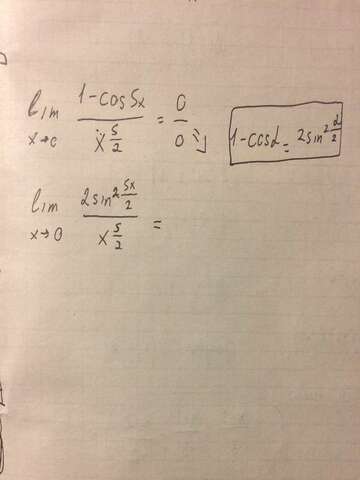 lim x→0 (1-cos5x)/(x^(5/2)) = 0/0 ⇒
1-cosα = 2sin²(α/2)
lim x→0 (2sin²(5x/2))/(x^(5/2)) =